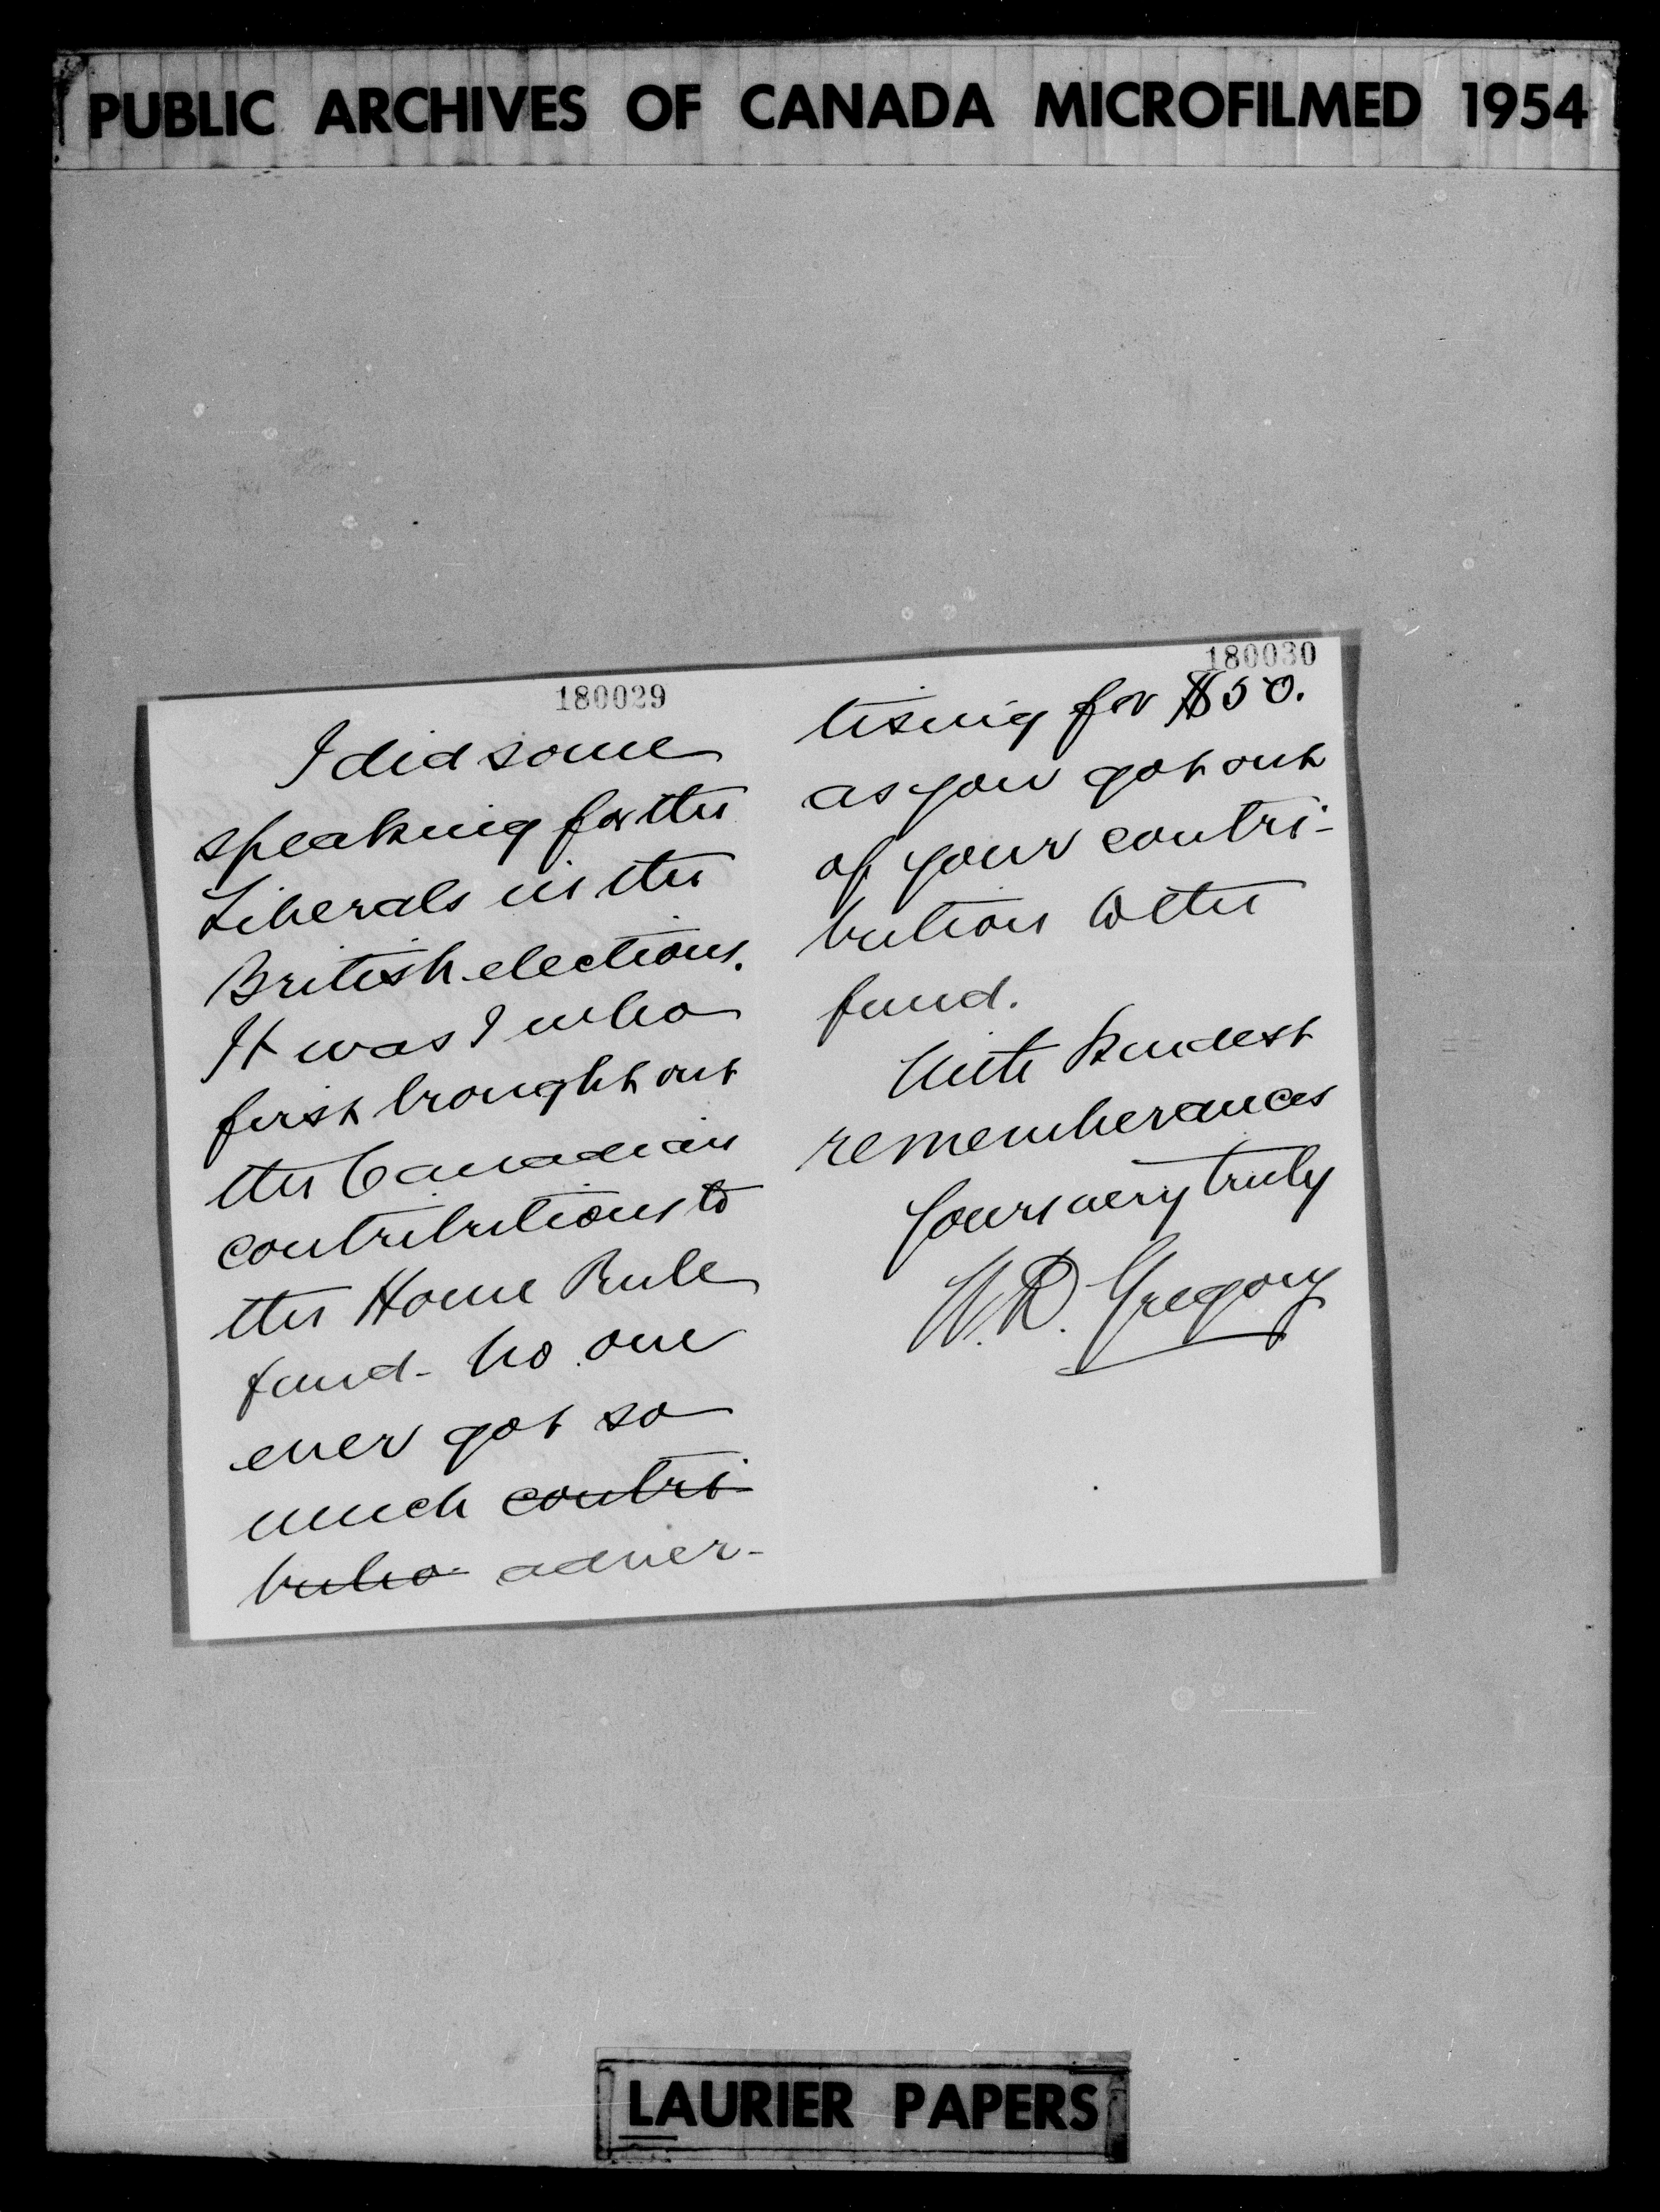 PUBLIC ARCHIVES OF CANADA MICROFILMED 1954
180029
I did some
speaking for the
Liberals in the
British elections.
It was I who
first brought out
the Canadian
contributions to
the Home Rule
fund - no one
ever got so
much contri-
butio- adver-
180030
tising for $50.
as you got out
of your contri-
bution to the
fund.
With kindest
rememberances
Yours very truly
W.D. Gregory
LAURIER PAPERS